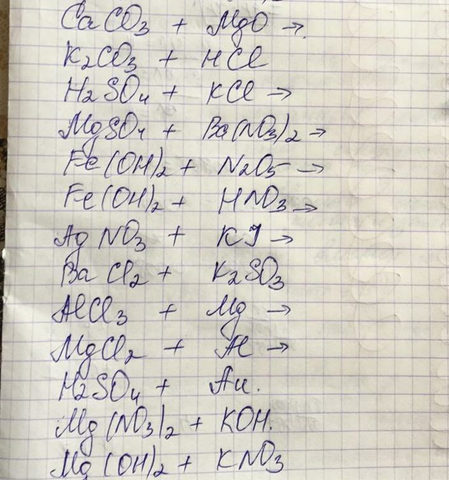 CaCO3 + MgO →
K2CO3 + HCl
H2SO4 + KCl →
MgSO4 + Ba(NO3)2 →
Fe(OH)2 + N2O5 →
Fe(OH)2 + HNO3 →
AgNO3 + KJ →
BaCl2 + K2SO3
AlCl3 + Mg →
MgCl2 + Al →
H2SO4 + Au.
Mg(NO3)2 + KOH.
Mg(OH)2 + KNO3